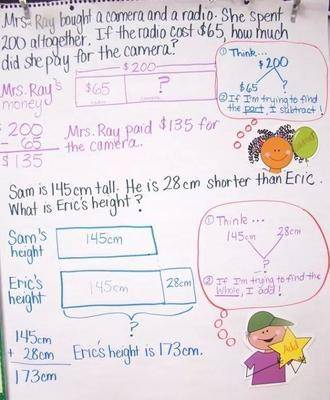 Mrs. Ray bought a camera and a radio. She spent
200 altogether. If the radio cost $65, how much
did she pay for the camera?
$200
Mrs. Ray's
money
$65
?
① Think...
$200
$65
?
② If I'm trying to find
the part, I subtract!
200
- 65
$135
Mrs. Ray paid $135 for
the camera.
Sam is 145cm tall. He is 28cm shorter than Eric.
What is Eric's height?
Sam's
height
145cm
Eric's
height
145cm
28cm
?
① Think...
145cm
28cm
?
② If I'm trying to find the
whole, I add!
145cm
+ 28cm
173cm
Eric's height is 173cm.
Add